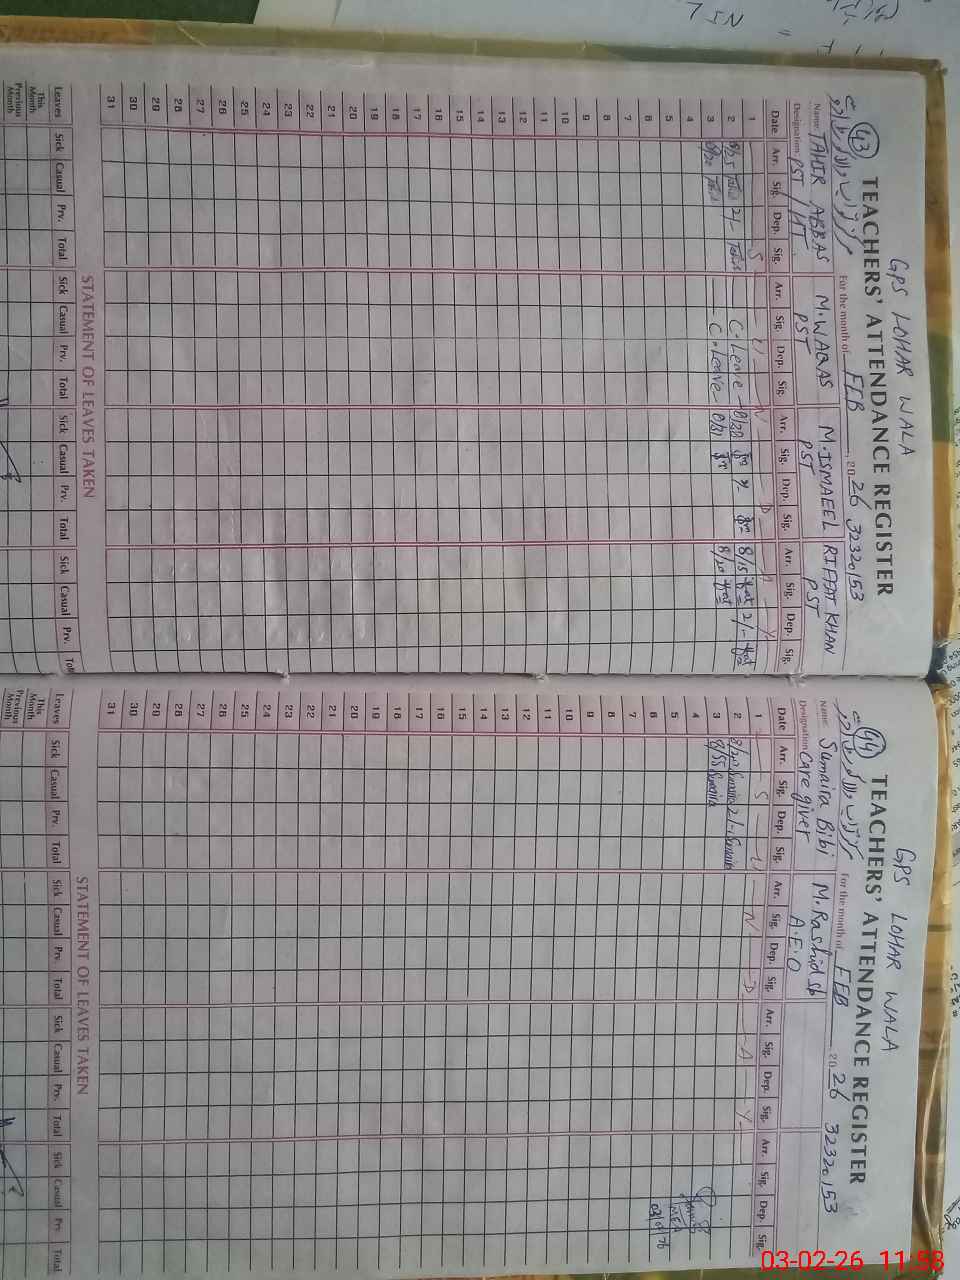 GPS LOHAR WALA
43 TEACHERS' ATTENDANCE REGISTER
For the month of FEB, 2026 32320153
Name TAHIR ABBAS M.WAQAS M.ISMAEEL RIFFAT KHAN
Designation PST / HT PST PST PST
Date Arr. Sig. Dep. Sig. Arr. Sig. Dep. Sig Arr. Sig. Dep. Sig. Arr. Sig. Dep. Sig.
1 S U N D A Y
2 8/25 2/- C. Leave 8/28 8/15 2/-
3 8/20 C. Leave 8/31 8/20
4
5
6
7
8
9
10
11
12
13
14
15
16
17
18
19
20
21
22
23
24
25
26
27
28
29
30
31
STATEMENT OF LEAVES TAKEN
Leaves Sick Casual Prv. Total Sick Casual Prv. Total Sick Casual Prv. Total Sick Casual Prv.
This Month
Previous Month
GPS LOHAR WALA
44 TEACHERS' ATTENDANCE REGISTER
For the month of FEB, 2026 32320153
Name Sumaira Bibi M. Rashid sb
Designation Care giver A.E.O
Date Arr. Sig. Dep. Sig. Arr. Sig. Dep. Sig. Arr. Sig. Dep. Sig. Arr. Sig. Dep. Sig.
1 S U N D A Y
2 Sumaira 2/- Sumaira
3 8/55 Sumaira
4
5 MEA
6
7
8
9
10
11
12
13
14
15
16
17
18
19
20
21
22
23
24
25
26
27
28
29
30
31
STATEMENT OF LEAVES TAKEN
Leaves Sick Casual Prv. Total Sick Casual Prv. Total Sick Casual Prv. Total Sick Casual Prv. Total
This Month
Previous Month
03-02-26 11:58